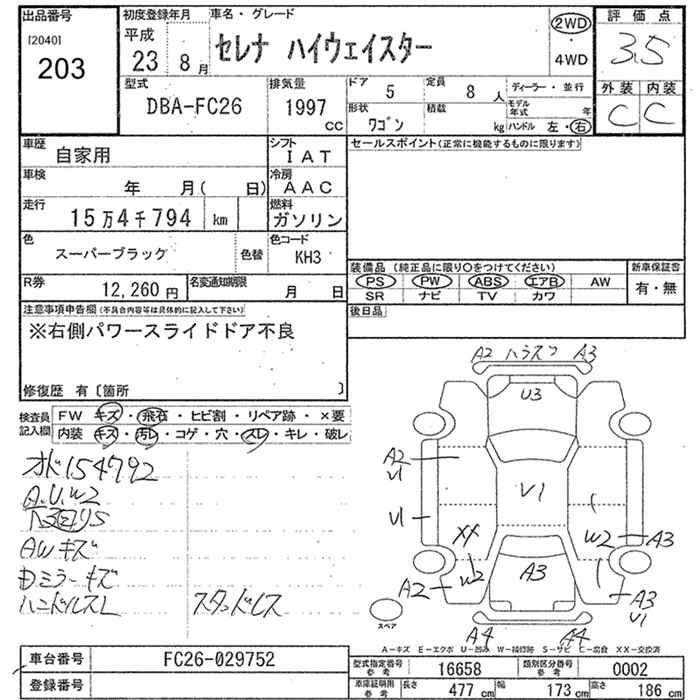 出品番号
[2040]
203
初度登録年月
平成
23年 8月
車名・グレード
セレナ ハイウェイスター
2WD
・
4WD
評価点
3.5
外装 内装
C C
型式
DBA-FC26
排気量
1997
CC
ドア
5
定員
8 人
ディーラー・並行
形状
ワゴン
積載
kg
モデル年式 年
ハンドル 左・右
車歴
自家用
シフト
IAT
車検
年 月( 日)
冷房
AAC
走行
15万4千794 km
燃料
ガソリン
色
スーパーブラック
色替
色コード
KH3
R券
12,260 円
名変通知期限
月 日
セールスポイント(正常に機能するものに限ります)
装備品 (純正品に限り○をつけてください)
PS PW ABS エアB AW
SR ナビ TV カワ
新車保証書
有・無
後日品
注意事項申告欄(不具合内容等は具体的に記入して下さい)
※右側パワースライドドア不良
修復歴 有〔箇所 〕
検査員
記入欄
FW キズ・飛石・ヒビ割・リペア跡・×要
内装 キズ・汚レ・コゲ・穴・スレ・キレ・破レ
オド154792
A.U.W2
AWキズ
Dミラーキズ
ハンドルスレ
スタッドレス
A2 A3
U3
A2
U1
V1
U1
XX
W2 A3
W2
A2
A3
A3
V1
スペア
A4 A4
A-キズ E-エクボ U-凹み W-補修跡 S-サビ C-腐食 XX-交換済
車台番号
FC26-029752
登録番号
型式指定番号
参考
16658
類別区分番号
参考
0002
車庫証明用
参考
長さ
477 cm
幅
173 cm
高さ
186 cm